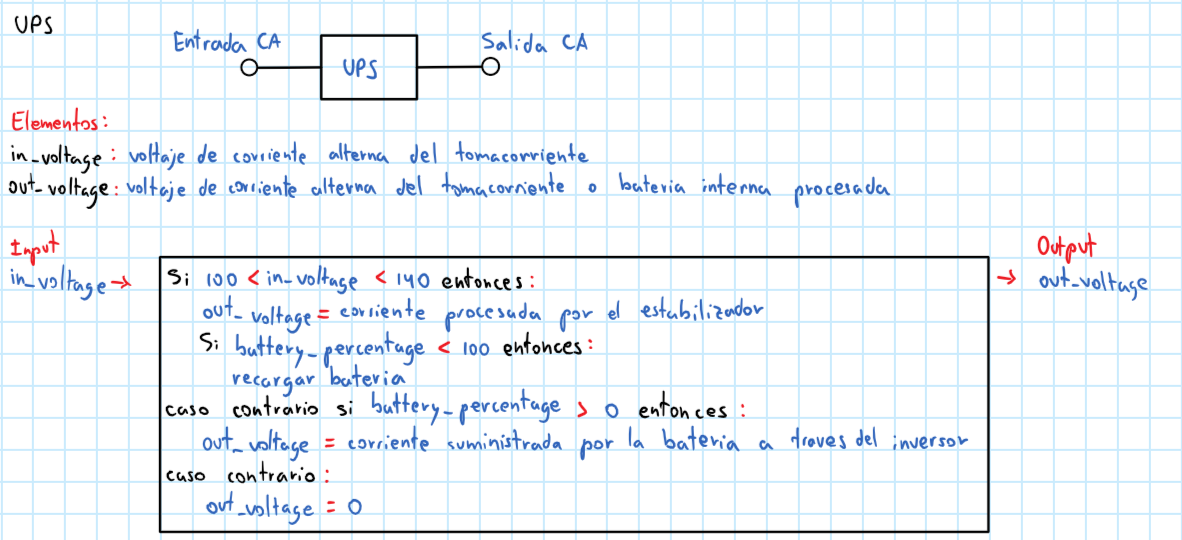 UPS
Entrada CA
UPS
Salida CA
Elementos:
in_voltage: voltaje de corriente alterna del tomacorriente
out_voltage: voltaje de corriente alterna del tomacorriente o bateria interna procesada
Input
in_voltage →
Si 100 < in_voltage < 140 entonces:
out_voltage = corriente procesada por el estabilizador
Si battery_percentage < 100 entonces:
recargar bateria
caso contrario si battery_percentage > 0 entonces:
out_voltage = corriente suministrada por la bateria a traves del inversor
caso contrario:
out_voltage = 0
Output
→ out_voltage